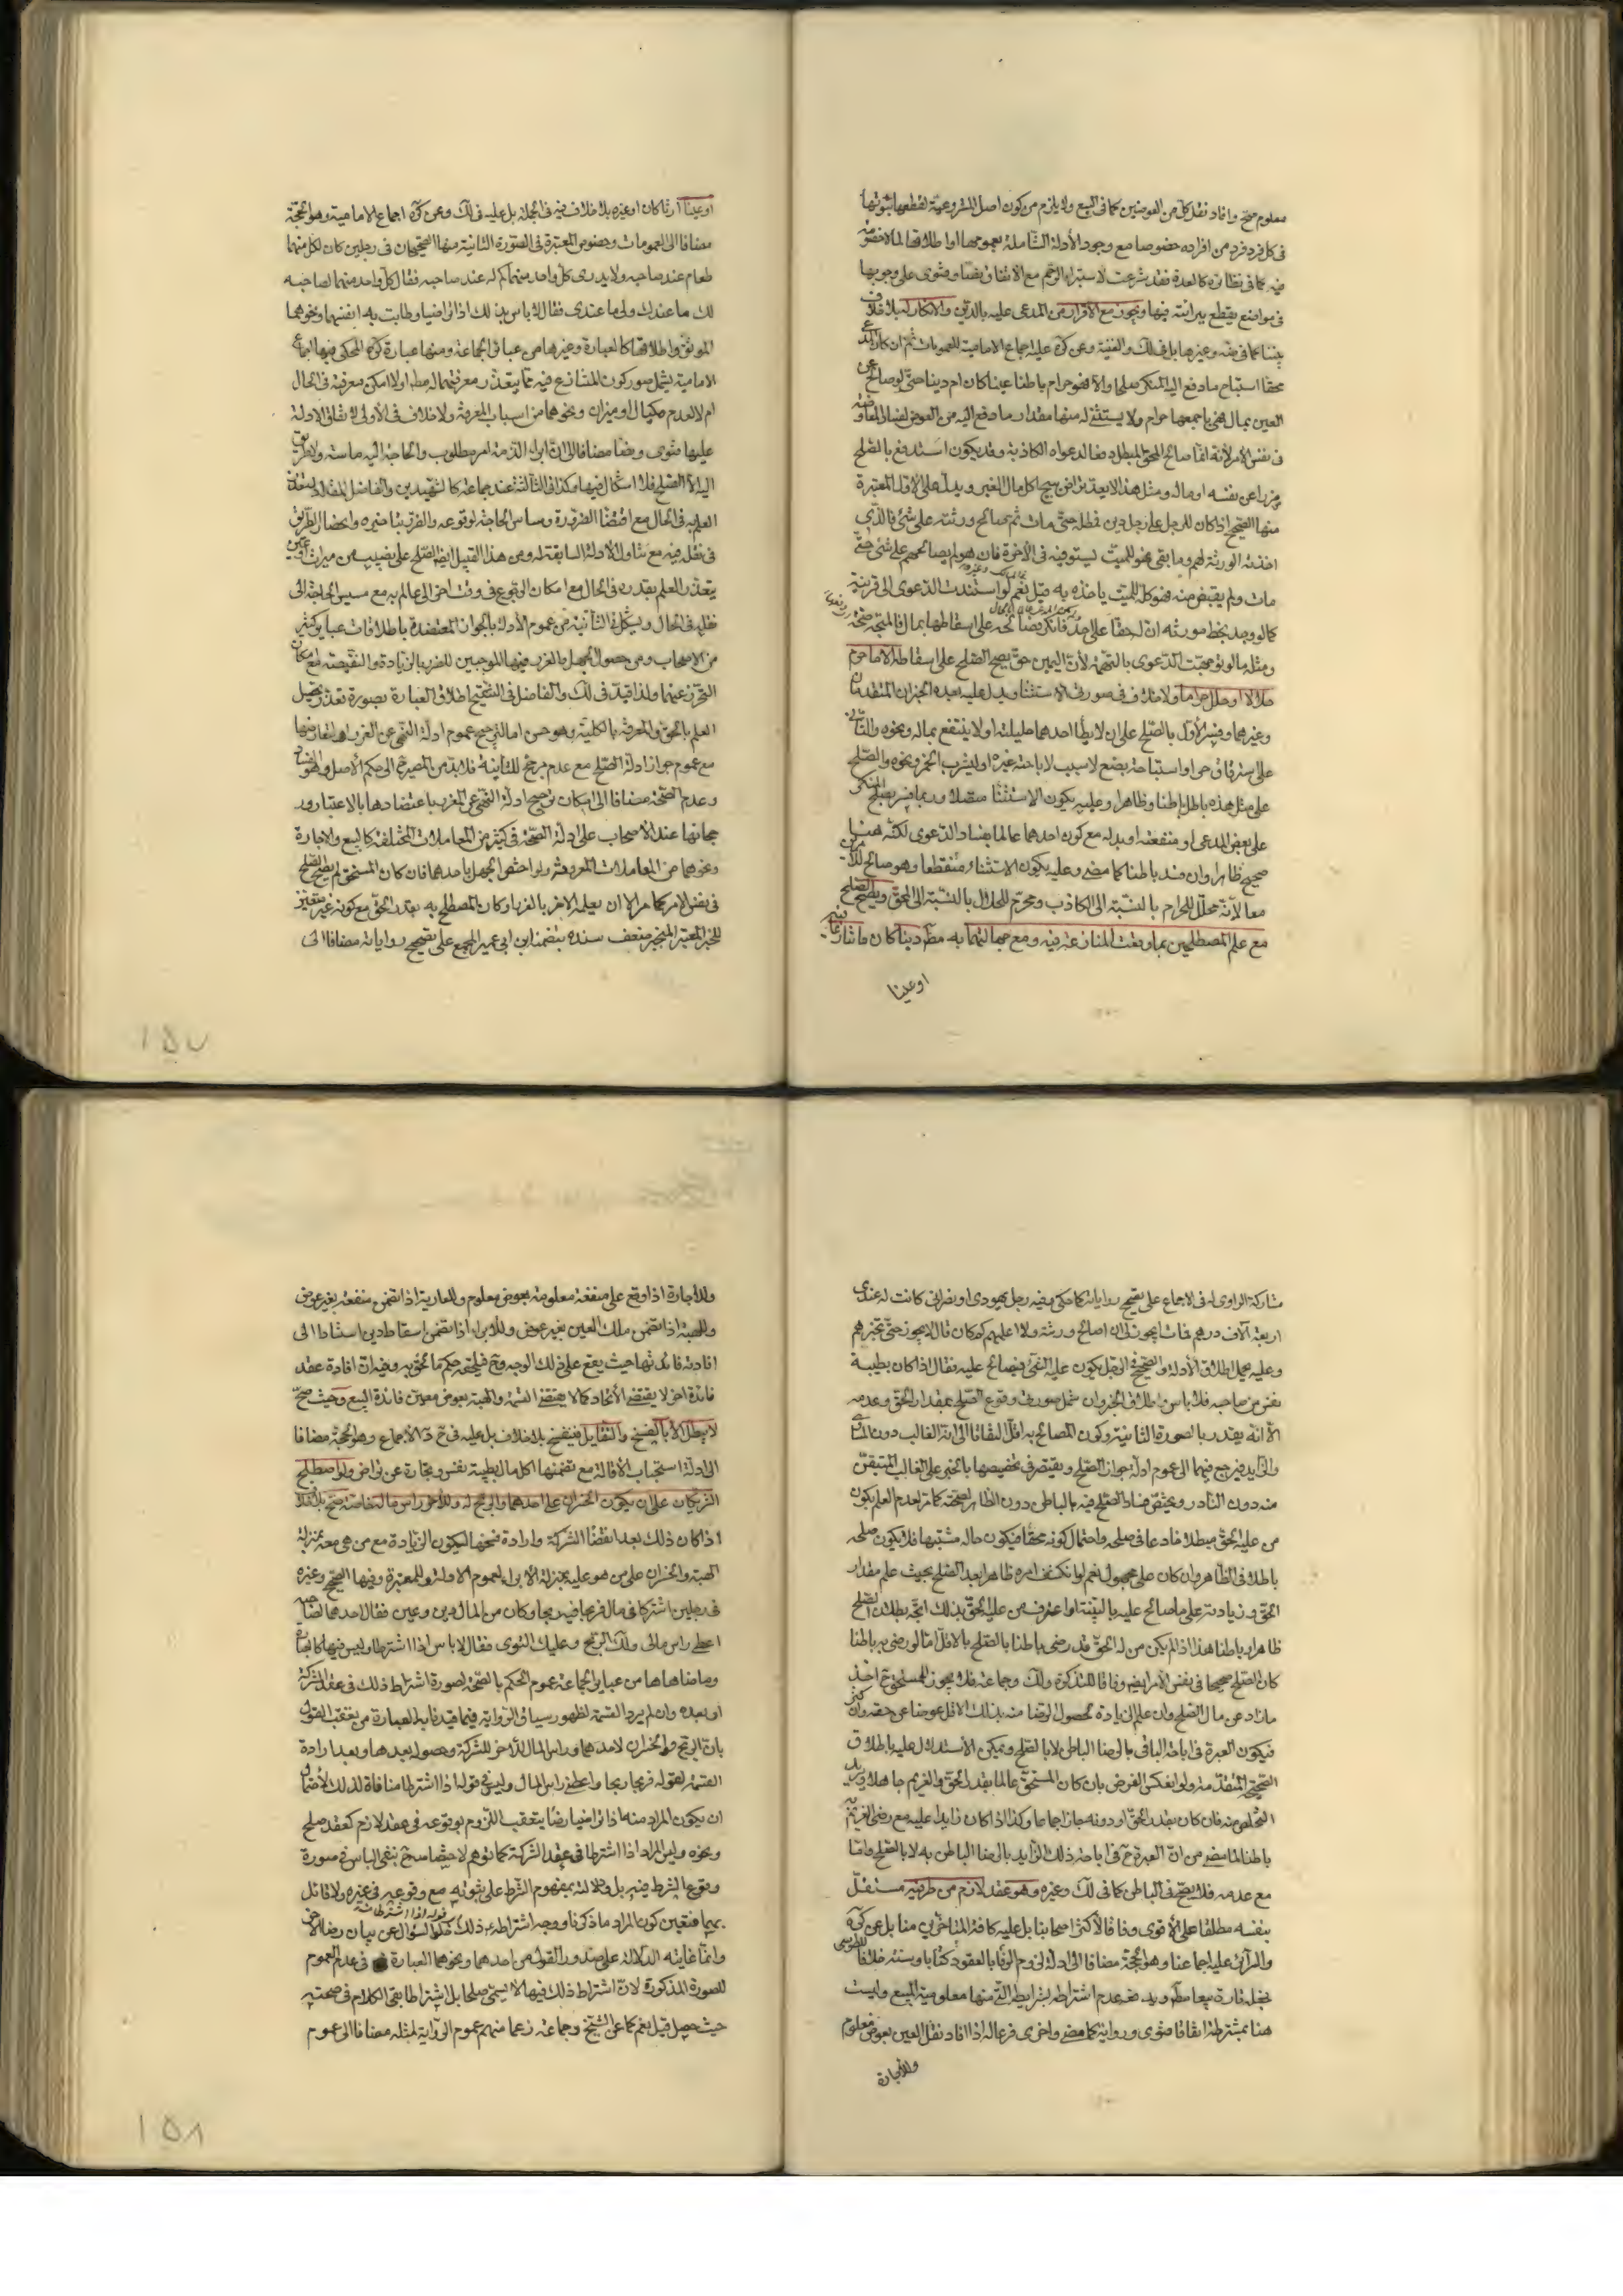 معلوم صح وافاد نقل كل من العوضين كما فى البيع ولا يلزم من كون اصل الشروعية لقطعها ثبوتها
فى كل فرد فرد من افراده خصوصا مع وجود الأدلة الشاملة بعمومها او اطلاقها لما لا خصومة
فيه كما فى نظائره كالعدة فقد شرعت لاستبراء الرحم مع الاتفاق نصا وفتوى على وجوبها
فى مواضع يقطع ببرائته فيها ويجوز مع الاقرار من المدعى عليه بالدين والانكار له بلا خلاف
بيننا كما فى وغيرها بل فى لك والغنية وعن كره عليه اجماع الامامية للعمومات ثم ان كان المدعى
محقا استباح ما دفع اليه المنكر صلحا والا فهو حرام باطنا عينا كان ام دينا حتى لو صالح عن
العين بمال فهى باجمعها حرام ولا يستثنى له منها مقدار ما دفع اليه من العوض لفساد المعاوضة
فى نفس الامر لانه انما صالح المحق المبطل دفعا لدعواه الكاذبة وقد يكون استدفع بالصلح
ضررا عن نفسه او ماله ومثل هذا لا يعد تراض يبيح اكل مال الغير ويدل على الاول المعتبرة
منها الصحيح اذا كان للرجل على رجل دين فمطله حتى مات ثم صالح ورثته على شئ فالذى
اخذته الورثة لهم وما بقى فهو للميت يستوفيه فى الآخرة فان هو لم يصالحهم على شئ حتى
مات ولم يقبض منه فهو كله للميت ياخذه به قيل نعم لو استندت الدعوى الى قرينة
كما لو وجد بخط مورثه ان له حقا على احد فانكر صالحه على اسقاطها بمال فالمتجه صحته
ومثله ما لو توجهت الدعوى بالتهمة لأن اليمين حق يصح الصلح على اسقاطه الا ما حرم
حلالا او حلل حراما ولا خلاف فى صورتى الاستثنا ويدل عليه بعده الخبران المتقدمان
وغيرهما وفسر الأول بالصلح على ان لا يطأ احدهما حليلته او لا ينتفع بماله ونحوه والثانى
على استرقاق حر او استباحة بضع لا سبب لاباحته غيره او ليشرب الخمر ونحوه والصلح
على مثل هذه باطل باطنا وظاهرا وعليه يكون الاستثنا متصلا وربما فسر بصلح المنكر
على بعض المدعى او منفعته او بدله مع كون احدهما عالما بفساد الدعوى لكنه هنا
صحيح ظاهرا وان فسد باطنا كما مضى وعليه يكون الاستثناء منقطعا وهو صالح للأمرين
معا لأنه محلل للحرام بالنسبة الى الكاذب ومحرم للحلال بالنسبة الى المحق ويصح الصلح
مع علم المصطلحين بما وقعت المنازعة فيه ومع جهالتهما به مطلقا دينا كان ما تنازعا فيه
او عينا
او عينا ارثا كان او غيره بلا خلاف فيه فى الجملة بل عليه فى لك وعن كره اجماع الامامية وهو الحجة
مضافا الى العمومات وخصوص المعتبرة فى الصورة الثانية منها الصحيحان فى رجلين كان لكل منهما
طعام عند صاحبه ولا يدرى كل واحد منهما كم له عند صاحبه فقال كل واحد منهما لصاحبه
لك ما عندك ولى ما عندى فقال لا باس بذلك اذا تراضيا وطابت به انفسهما ونحوهما
الموثق واطلاقها كالعبارة وغيرها من عبائر الجماعة ومنها عبارة كره المحكى فيها اجماع
الامامية يشمل صور كون المتنازع فيه مما يتعذر معرفتهما له مطلقا او لا امكن معرفته فى الحال
ام لا لعدم مكيال او ميزان ونحوهما من اسباب المعرفة ولا خلاف فى الأولى لاتفاق الادلة
عليها فتوى ونصا مضافا الى ان ابراء الذمة امر مطلوب والحاجة اليه ماسة ولا طريق
اليه الا الصلح فلا اشكال فيها وكذا فى الثالثة عند جماعة كالشهيدين والفاضل المقداد لتعذر
العلم به فى الحال مع اقتضا الضرورة ومساس الحاجة لوقوعه والضرر بتاخيره وانحصار الطريق
فى نقله فيه مع تناول الادلة السابقة له ومن هذا القبيل ايضا الصلح على نصيب من ميراث او عين
يتعذر العلم بقدره فى الحال مع امكان الرجوع فى وقت اخر الى عالم به مع مسيس الحاجة الى
نقله فى الحال ويشكل فى الثانية من عموم الأدلة بالجواز المعتضدة باطلاقات عبائر كثير
من الاصحاب ومن حصول الجهل بالغرر فيهما الموجبين للضرر بالزيادة والنقيصة مع امكان
التحرز عنهما ولذا قيد فى لك والفاضل فى التنقيح اطلاق العبارة بصورة تعذر تحصيل
العلم بالحق والمعرفة بالكلية وهو حسن اما لترجيح عموم ادلة النهى عن الغرر او لتعارضها
مع عموم جواز ادلة الصلح مع عدم مرجح للثانية فلا بد من المصير الى حكم الأصل وهو الفساد
وعدم الصحة مضافا الى امكان ترجيح ادلة النهى عن الغرر باعتضادها بالاعتبار ور
جحانها عند الأصحاب على ادلة الصحة فى كثير من المعاملات المختلفة كالبيع والاجارة
ونحوهما من المعاملات المعروفة ولو اختص الجهل باحدهما فان كان المستحق لم يصح الصلح
فى نفس الامر كما مر الا ان يعلمه الآخر بالقدر او كان المصطلح به بقدر الحق مع كونه غير متعين
للخبر المعتبر المنجبر ضعف سنده بتضمنه ابن ابى عمير المجمع على تصحيح رواياته مضافا الى
١٥٧
مشاركة الراوى له فى الاجماع على تصحيح رواياته كما حكى وفيه رجل يهودى او نصرانى كانت له عندى
اربعة آلاف درهم فمات ايجوز لى ان اصالح ورثته ولا اعلمهم كم كان قال لا يجوز حتى تخبرهم
وعليه يحمل اطلاق الأدلة والصحيح فى الرجل يكون عليه الشئ فيصالح عليه فقال اذا كان بطيبة
نفس من صاحبه فلا باس واطلاق الخبر وان شمل صورتى وقوع الصلح بمقدار الحق وعدمه
الا انه يقدر بالصورة الثانية وكون المصالح به اقل التفاتا الى انه الغالب دون المساوى
والزايد فيرجع فيهما الى عموم ادلة جواز الصلح ويقتصر فى تخصيصها بالخبر على الغالب المتيقن
منه دون النادر ويختص فساد الصلح فيه بالباطن دون الظاهر لصحته كما مر لعدم العلم بكون
من عليه الحق مبطلا خادعا فى صلحه واحتمال كونه محقا فيكون حاله مشتبها فلا يكون صلحه
باطلا فى الظاهر وان كان على مجهول نعم لو انكشف امره ظاهرا بعد الصلح بحيث علم مقدار
الحق وزيادته على ما صالح عليه بالبينة او اعترف من عليه الحق بذلك اتجه بطلان الصلح
ظاهرا وباطنا هذا اذا لم يكن من له الحق قد رضى باطنا بالصلح بالاقل اما لو رضى به باطنا
كان الصلح صحيحا فى نفس الأمر ايضا وفاقا للتذكرة ولك وجماعة فلا يجوز للمستحق ح اخذ
ما زاد عن مال الصلح وان علم الزيادة لحصول الرضا منه بذلك الاقل عوضا عن حقه وان كثر
فيكون العبرة فى اباحة الباقى بالرضا الباطن لا بالصلح ويمكن الاستدلال عليه باطلاق
الصحيح المتقدم منه ولو انعكس الفرض بان كان المستحق عالما بقدر الحق والغريم جاهلا ويريد
التخلص منه فان كان بقدر الحق او دونه جاز اجماعا وكذا اذا كان زايدا عليه مع رضى الغريم به
باطنا لما مضى من ان العبرة ح فى اباحة ذلك الزايد بالرضا الباطن به لا بالصلح واما
مع عدمه فلا يصح فى الباطن كما فى لك وغيره وهو عقد لازم من طرفيه مستقل
بنفسه مطلقا على الأقوى وفاقا لأكثر اصحابنا بل عليه كافة المتاخرين منا بل عن كره
والسرائر عليه اجماعنا وهو الحجة مضافا الى ادلة لزوم الوفا بالعقود كتابا وسنة خلافا للطوسى
فجعله تارة بيعا مطلقا ويدفعه عدم اشتراطه بشرايطه التى منها معلومية المبيع وليست
هنا بمشترطة اتفاقا فتوى ورواية كما مضى واخرى فرعا له اذا افاد نقل العين بعوض معلوم
وللأجارة
وللأجارة اذا وقع على منفعة معلومة بعوض معلوم وللعارية اذا تضمن منفعة بغير عوض
وللهبة اذا تضمن ملك العين بغير عوض وللابراء اذا تضمن اسقاط دين استنادا الى
افادته فائدتها حيث يقع على ذلك الوجه وح فيلحقه حكم ما لحق به وفيه ان افادة عقد
فائدة اخر لا يقتضى الأتحاد كما لا يقتضى القسمة والهبة بعوض معين فائدة البيع وحيث صح
لا يبطل الا بالفسخ والتقايل فينفسخ بلا خلاف بل عليه فى الاجماع وهو الحجة مضافا
الى ادلة استحباب الأقالة مع تضمنها اكل مال بطيبة نفس وتجارة عن تراض ولو اصطلح
الشريكان على ان يكون الخسران على احدهما والربح له وللأخر راس ماله خاصة صح بلا خلاف
اذا كان ذلك بعد انقضا الشركة وارادة فسخها لتكون الزيادة مع من هى معه بمنزلة
الهبة والخسران على من هو عليه بمنزلة الأبراء لعموم الادلة وللمعتبرة وفيها الصحيح وغيره
فى رجلين اشتركا فى مال فربحا فيه ربحا وكان من المال دين وعين فقال احدهما لصاحبه
اعطنى راس مالى ولك الربح وعليك التوى فقال لا باس اذا اشترطا وليس فيها كالعبارة
وما ضاهاها من عبائر الجماعة عموم الحكم بالصحة لصورة اشتراط ذلك فى عقد الشركة
او بعده وان لم يرد القسمة لظهور سياق الرواية فيما قيدنا به العبارة من تعقب القول
بان الربح والخسران لاحدهما وراس المال للأخر للشركة وحصوله بعدها وبعد ارادة
القسمة لقوله فربحا ربحا واعطنى راس المال وليس فى قوله اذا اشترطا منافاة لذلك لأحتمال
ان يكون المراد منه اذا تراضيا رضا يتعقب اللزوم بوقوعه فى عقد لازم كعقد صلح
ونحوه وليس المراد اذا اشترطا فى عقد الشركة كما توهم لاختصاصه ح بنفى الباس فى صورة
وقوع الشرط فيه بل ودلالته بمفهوم الشرط على ثبوته مع وقوعه فى غيره ولا قائل
بهما فتعين كون المراد ما ذكرنا ووجه اشتراطه ذلك خلو السؤال عن بيان رضا الاخر
وانما غايته الدلالة على صدور القول من احدهما ونحوهما العبارة فى عدم العموم
للصورة المذكورة لان اشتراط ذلك فيها لا يسمى صلحا بل اشتراطا بقى الكلام فى صحته
حيث حصل قيل نعم كما عن الشيخ وجماعة زعما منهم عموم الرواية لمثله مضافا الى عموم
١٥٨